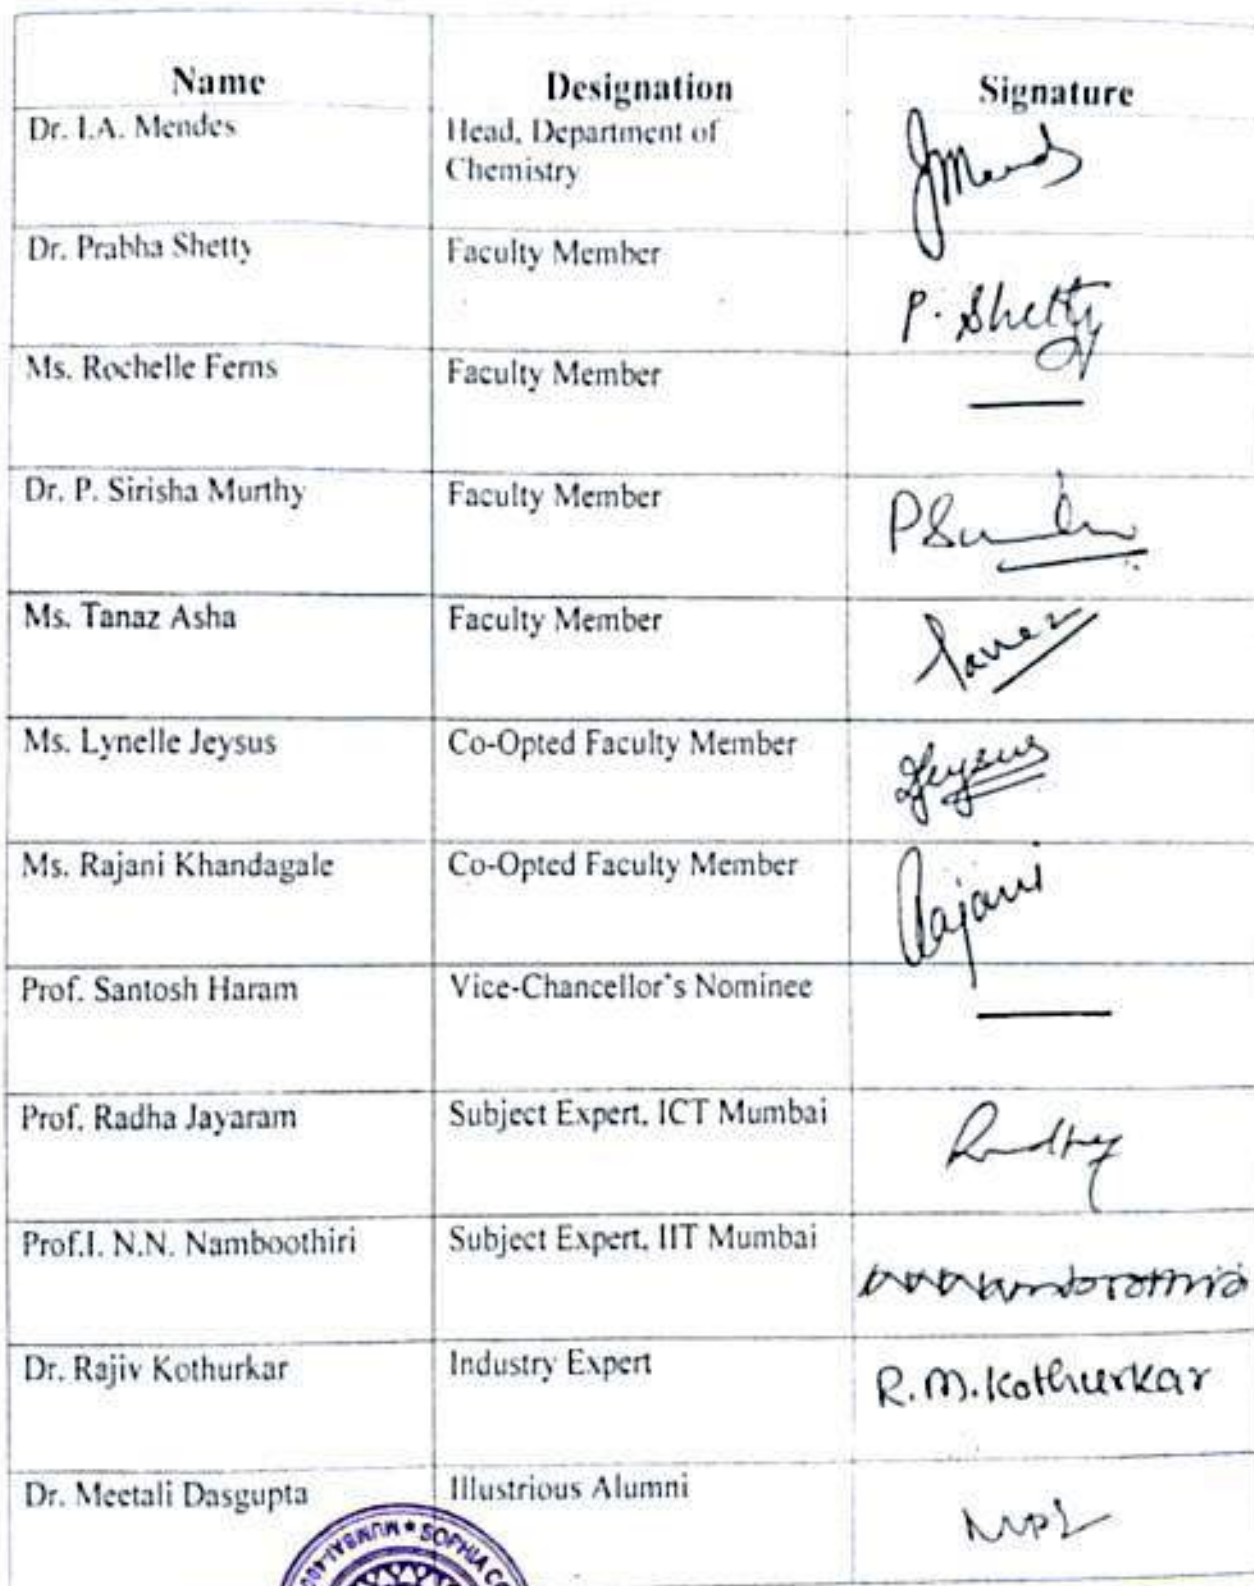 Name Designation Signature
Dr. I.A. Mendes Head, Department of
Chemistry JMends
Dr. Prabha Shetty Faculty Member P. Shetty
Ms. Rochelle Ferns Faculty Member
Dr. P. Sirisha Murthy Faculty Member
Ms. Tanaz Asha Faculty Member Tanaz
Ms. Lynelle Jeysus Co-Opted Faculty Member LJeysus
Ms. Rajani Khandagale Co-Opted Faculty Member Rajani
Prof. Santosh Haram Vice-Chancellor's Nominee
Prof. Radha Jayaram Subject Expert, ICT Mumbai
Prof.I. N.N. Namboothiri Subject Expert, IIT Mumbai
Dr. Rajiv Kothurkar Industry Expert R.M.Kothurkar
Dr. Meetali Dasgupta Illustrious Alumni
MUMBAI-400 * SOPHIA CO